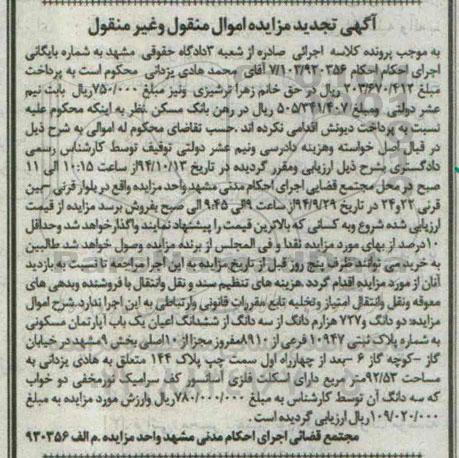 آگهی تجدید مزایده اموال منقول وغیر منقول
به موجب پرونده کلاسه اجرائی صادره از شعبه ۳دادگاه حقوقی مشهد به شماره بایگانی
اجرای احکام احکام ۷/۱۰۳/۹۳۰۳۵۶ آقای محمد هادی یزدانی محکوم است به پرداخت
مبلغ ۲۰۳/۶۷۰/۴۱۲ ریال در حق خانم زهرا ترشیزی ونیز مبلغ ۷۵۰/۰۰۰ریال بابت نیم
عشر دولتی ومبلغ ۵۰۵/۳۴۱/۴۰۷ ریال در رهن بانک مسکن .نظر به اینکه محکوم علیه
نسبت به پرداخت دیونش اقدامی نکرده اند .حسب تقاضای محکوم له اموالی به شرح ذیل
در قبال اصل خواسته وهزینه دادرسی ونیم عشر دولتی توقیف توسط کارشناس رسمی
دادگستری بشرح ذیل ارزیابی ومقرر گردیده در تاریخ ۹۴/۱۰/۱۳از ساعت ۱۰:۱۵ الی ۱۱
صبح در محل مجتمع قضایی اجرای احکام مدنی مشهد واحد مزایده واقع در بلوار قرنی -بین
قرنی ۲۲و۲۴ در تاریخ ۹۴/۹/۲۹از ساعت ۹الی ۹:۴۵ الی صبح بفروش برسد مزایده از قیمت
ارزیابی شده شروع وبه کسانی که بالاترین قیمت را پیشنهاد نمایند واگذار خواهد شد وحداقل
۱۰درصد از بهای مورد مزایده نقدا و فی المجلس از برنده مزایده وصول خواهد شد طالبین
به خرید می توانند ظرف پنج روز قبل از تاریخ مزایده به این اجرا مراجعه تا نسبت به بازدید
آنان از مورد مزایده اقدام گردد .هزینه های تنظیم سند و نقل وانتقال با فروشنده وبدهی های
معوقه ونقل وانتقال امتیاز وتخلیه تابع مقررات قانونی وارتباطی به این اجرا ندارد.شرح اموال
مزایده: دو دانگ و۷۲۷ هزارم دانگ از سه دانگ از ششدانگ اعیان یک باب آپارتمان مسکونی
به شماره پلاک ثبتی ۱۰۹۴۷ فرعی از ۸۹۱۰مفروز مجزا از ۱۰اصلی بخش ۹مشهد در خیابان
گاز -کوچه گاز ۶ -بعد از چهارراه اول سمت چپ پلاک ۱۴۴ متعلق به هادی یزدانی به
مساحت ۹۲/۵۳متر مربع دارای اسکلت فلزی آسانسور کف سرامیک نورمخفی دو خواب
که سه دانگ آن توسط کارشناس به مبلغ ۷۸۰/۰۰۰/۰۰۰ریال وارزش مورد مزایده به مبلغ
۱۰۹/۰۲۰/۰۰۰ریال ارزیابی گردیده است .
مجتمع قضائی اجرای احکام مدنی مشهد واحد مزایده .م الف ۹۳۰۳۵۶